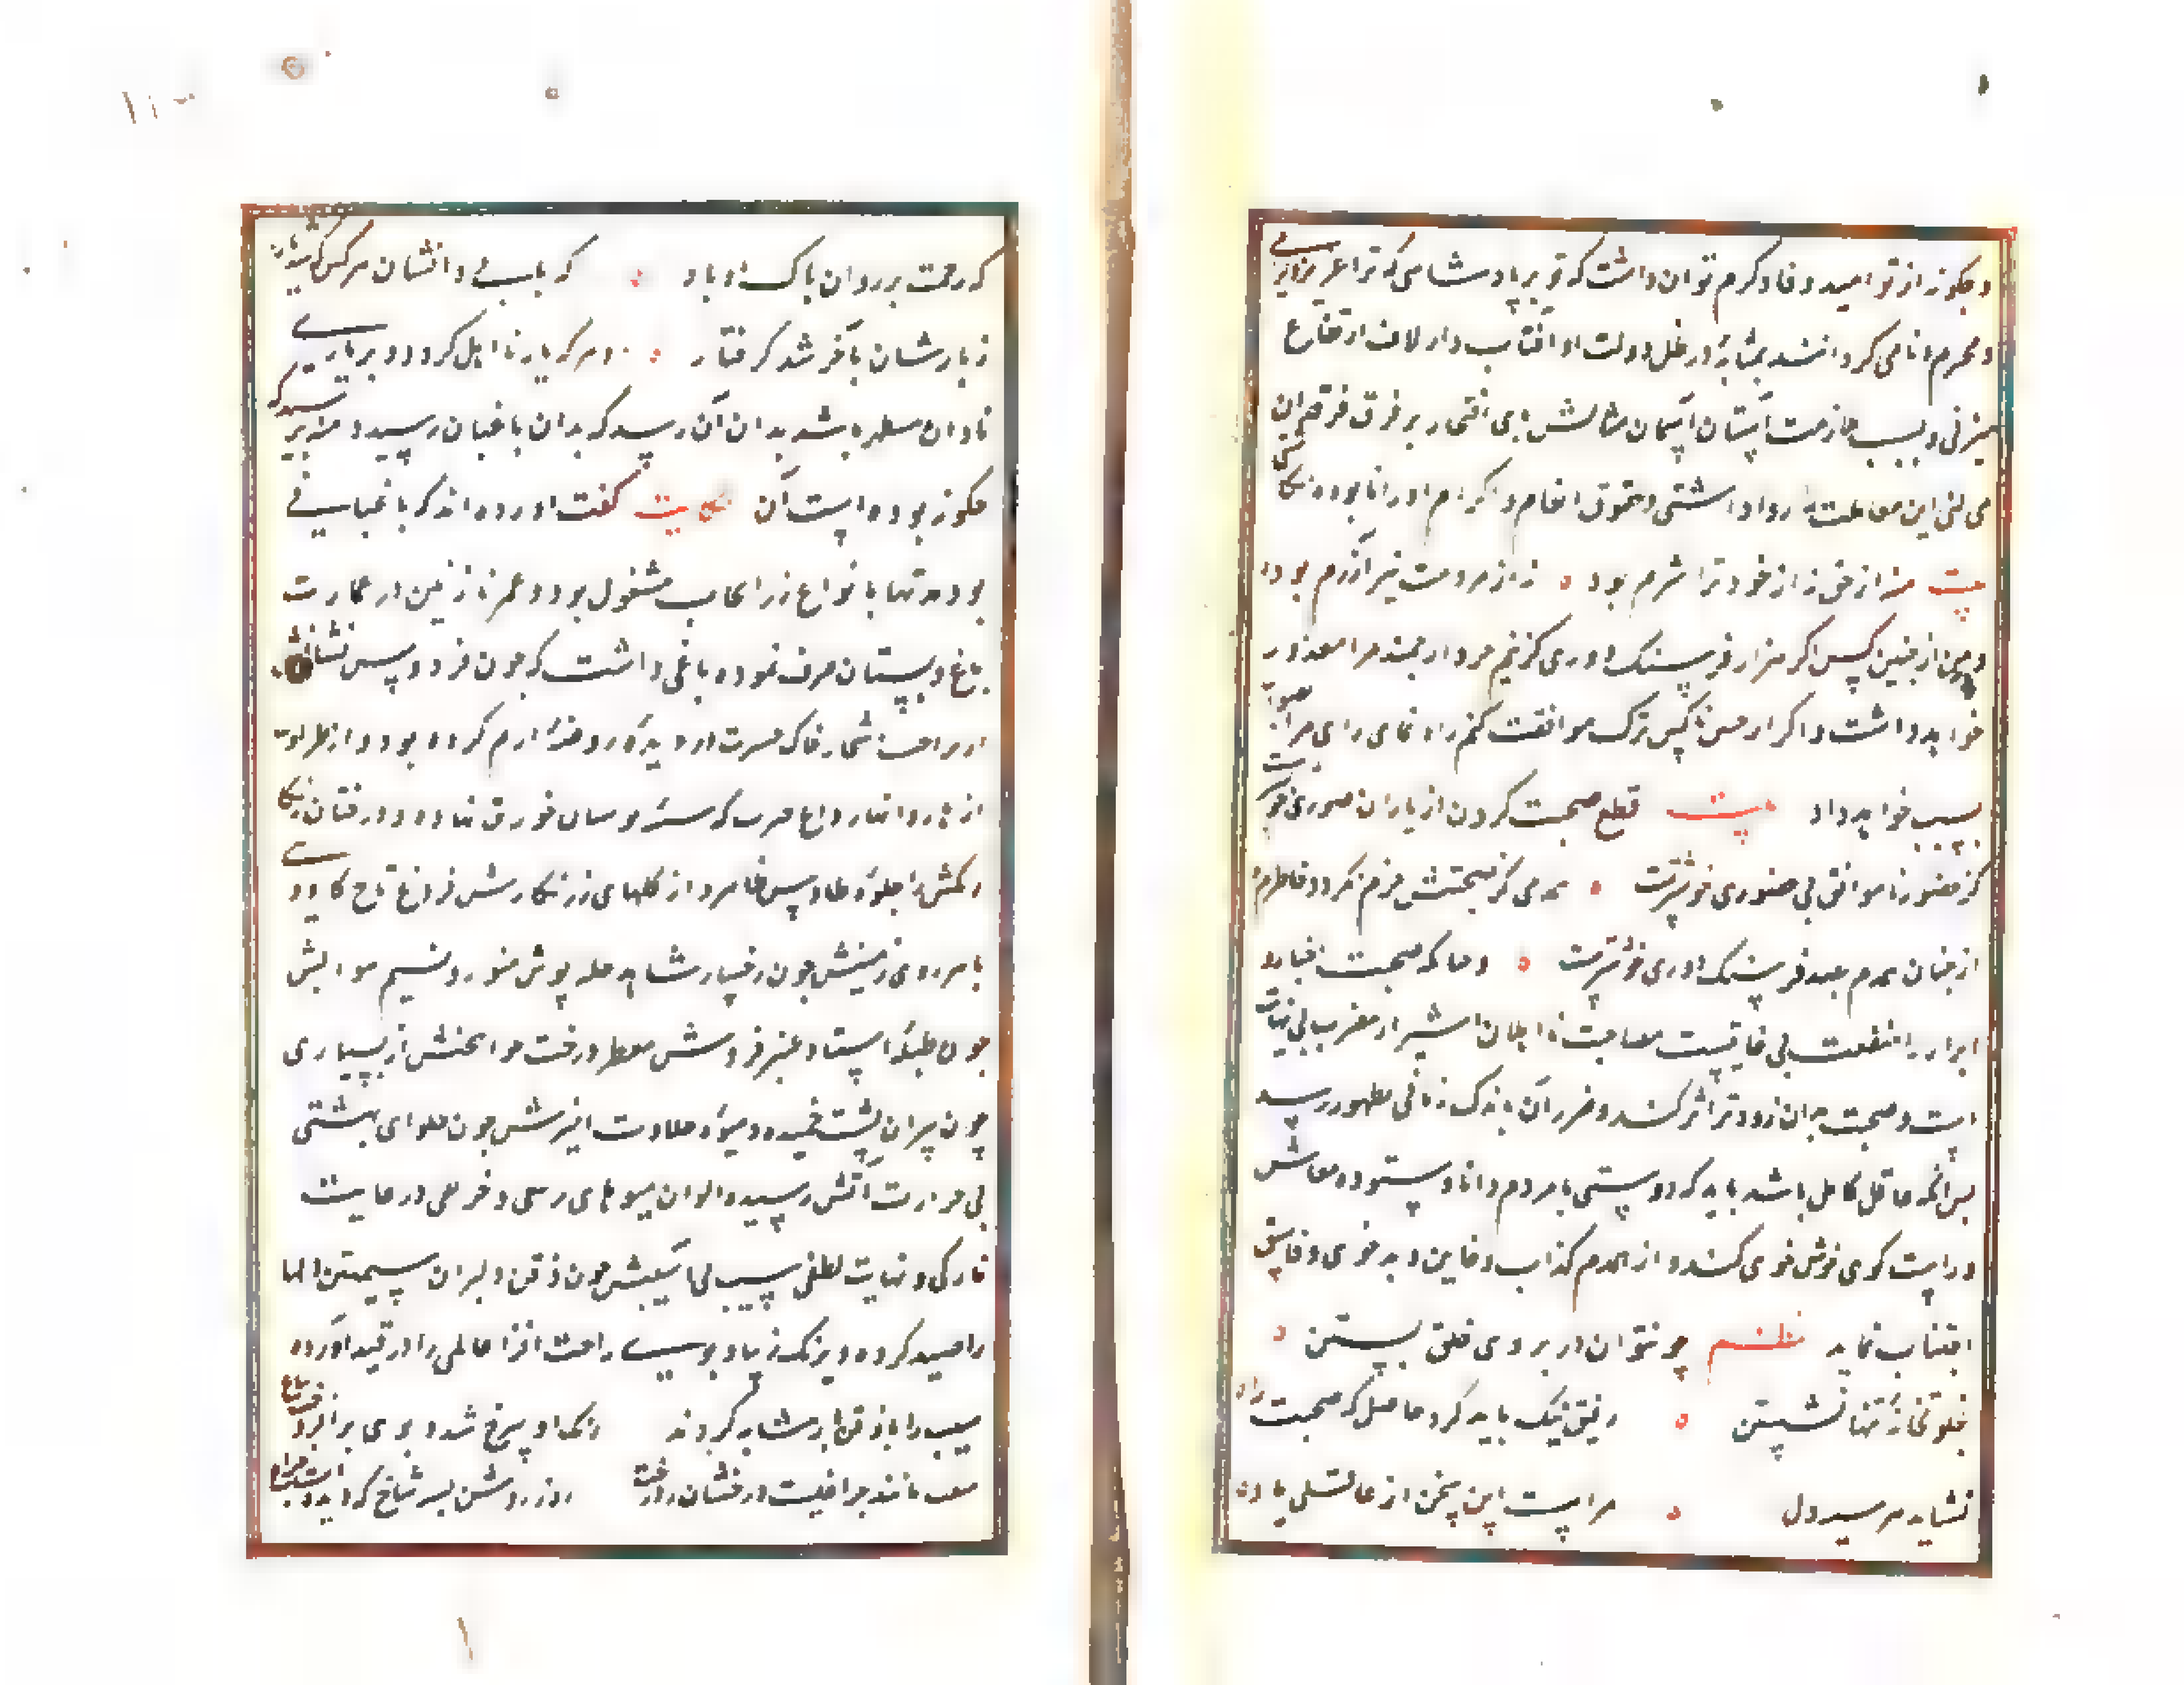 و چکونه از تو امید وفا و کرم توان داشت که تو بر پادشاهی که ترا عزیز
و محترم و نامی کردانند بمثابهٔ در ظل دولت او آفتاب وار لاف ارتفاع
میزنی و بسبب ملازمت آستان آسمان مثالش پای افتخار بر فرق فرقدان
می نهی این معاملت روا داشتی و حقوق انعام و اکرام او را نابوده انکاشتی
بیت نه از حق نه از خود ترا شرم بود نه از مردمت نیز آزرم بود
و من از چنین کس اکر هزار فرسنک دوری کزینم خردارجمند مرا معذور
خواهد داشت و اکر از چنین ناکس ترک موافقت کنم راه نمای رای مرا
بسبب خواهد داد بیت قطع صحبت کردن از یاران صوری خوشترست
کز حضور ناموافق بی حضوری خوشترست همدمی کز صحبتش خرم نکردد خاطرم
از چنان همدم بصد فرسنک دوری خوشترست و چنانکه صحبت اخیار و
ابرار را منفعت بی غایتست مصاحبت نااهلان و اشرار را مضرت بی نهایت
است و صحبت بدان زودتر اثر کند و ضرر آن باندک زمانی بظهور رسد
پس آنکه عاقل کامل باشد باید که دوستی با مردم دانا و ستوده معاش
و راست کوی خوش خوی کند و از همدم کذاب و خاین و بدخوی و فاسق
اجتناب نماید نظم چو نتوان در بروی خلق بستن
بخلوتخانهٔ تنها نشستن رفیق نیک باید کرد حاصل که صحبت را
نشاید هر سیه دل مراست این سخن از عاقلی یاد
که رحمت بر روان پاک او باد که با بی دانشان هر کس که شد یار
ز یارشان بآخر شد کرفتار و هر که یار نااهل کردد و بر یاری
نادان مستظهر باشد بدان آن رسد که بدان باغبان رسید دمنه پرسید که
چکونه بوده است آن حکایت کفت آورده اند که باغبانی
بود مدتها بانواع زراعات مشغول بود و عمر نازنین در عمارت
باغ و بستان صرف نموده باغی داشت که چون فردوس
خاک حسرت در دیدهٔ روضهٔ ارم کرده بود و از طراوت
ازهار و انهار داغ حیرت بر سینهٔ بستان خورنق نهاده درختان
رنکینش را جلوهٔ طاوس ظاهر و از کلهای زرنکارش فروغ تاج کاوسی
باهر روی زمینش چون رخسار شاهد حله پوش منور و نسیم هوایش
چون طبلهٔ استاد عنبر فروش معطر درخت جوان بختش از بسیاری
چون پیران پشت خمیده و میوهٔ حلاوت آمیزش چون حلوای بهشتی
بی حرارت آتش رسیده و الوان میوهای ربیعی و خریفی در غایت
نازکی و نهایت لطف سیب بی آسیبش چون ذقن دلبران سیمتن دلها
را صید کرده و برنک زیبا و بوی راحت افزا عالمی را در قید آورده
سیب را با ذقن یار مشابه کردند رنک او سرخ شد و بوی برآورد
سیب مانند چراغیست درخشان ز درخت روز روشن بسر شاخ که دیدست چراغ